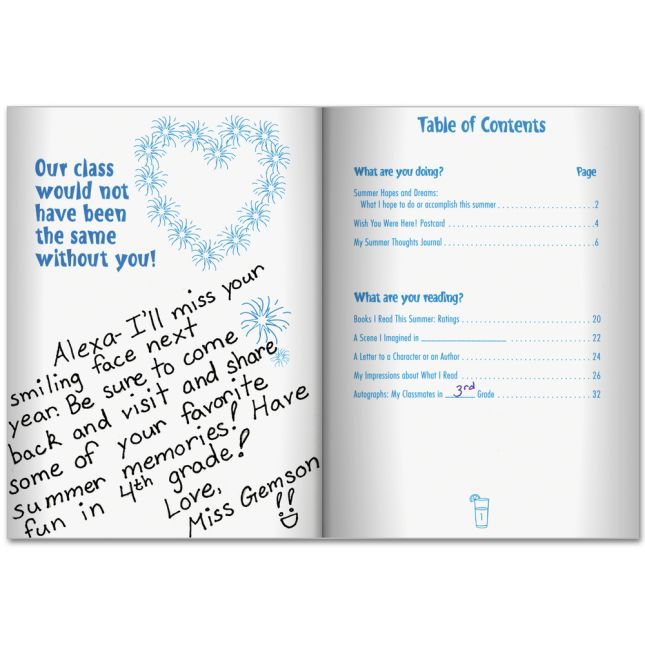 Our class
would not
have been
the same
without you!
Alexa- I'll miss your
smiling face next
year. Be sure to come
back and visit and share
some of your favorite
summer memories! Have
fun in 4th grade!
Love,
Miss Gemson
Table of Contents
What are you doing? Page
Summer Hopes and Dreams:
What I hope to do or accomplish this summer . . . . . . . . . . . . . . . . . . 2
Wish You Were Here! Postcard . . . . . . . . . . . . . . . . . . . . . . . . . . . . 4
My Summer Thoughts Journal . . . . . . . . . . . . . . . . . . . . . . . . . . . . 6
What are you reading?
Books I Read This Summer: Ratings . . . . . . . . . . . . . . . . . . . . . . . . 20
A Scene I Imagined in ____________________ . . . . . . . . . . . . . . . . 22
A Letter to a Character or an Author . . . . . . . . . . . . . . . . . . . . . . . . 24
My Impressions about What I Read . . . . . . . . . . . . . . . . . . . . . . . . 26
Autographs: My Classmates in 3rd Grade . . . . . . . . . . . . . . . . . . . . 32
1